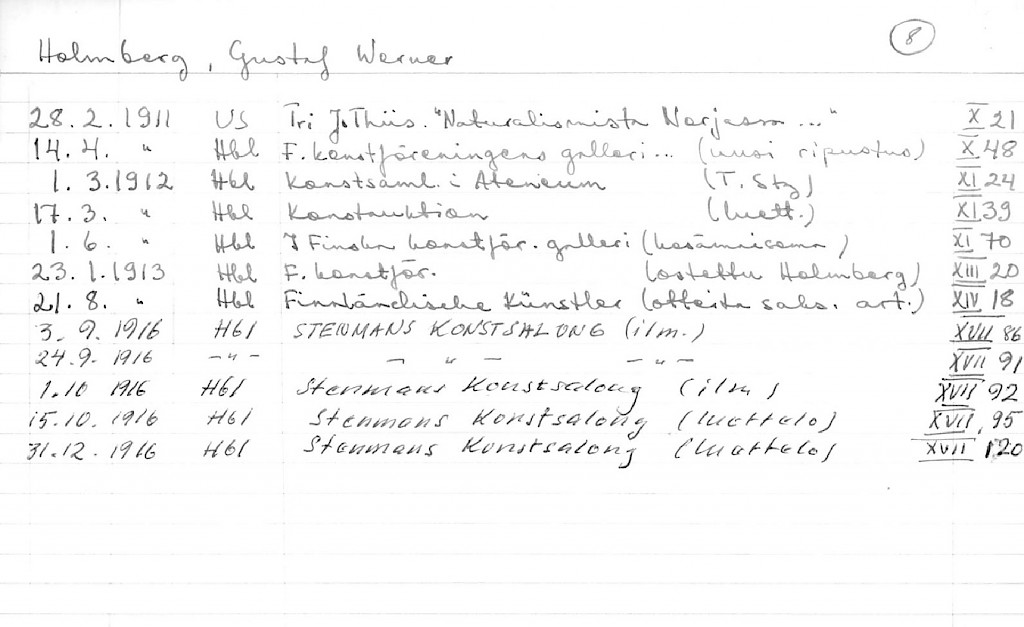 8
Holmberg, Gustaf Werner
28. 2. 1911 US Tri J. Thiis. "Naturalismista Norjassa ..." X 21
14. 4. " Hbl F. konstföreningens galleri... (uusi ripustus) X 48
1. 3. 1912 Hbl Konstsaml. i Ateneum (T. Stg) XI 24
17. 3. " Hbl Konstauktion (luett.) XI 39
1. 6. " Hbl I Finska konstför. galleri (kesämaisema) XI 70
23. 1. 1913 Hbl F. konstför. (ostettu Holmberg) XIII 20
21. 8. " Hbl Finnländische Künstler (otteita saks. art.) XIV 18
3. 9. 1916 Hbl STENMANS KONSTSALONG (ilm.) XVII 86
24.9. 1916 — " — — " — — " — XVII 91
1.10 1916 Hbl Stenmans Konstsalong (ilm) XVII 92
15.10. 1916 Hbl Stenmans Konstsalong (luettelo) XVII, 95
31.12. 1916 Hbl Stenmans Konstsalong (luettelo) XVII 120